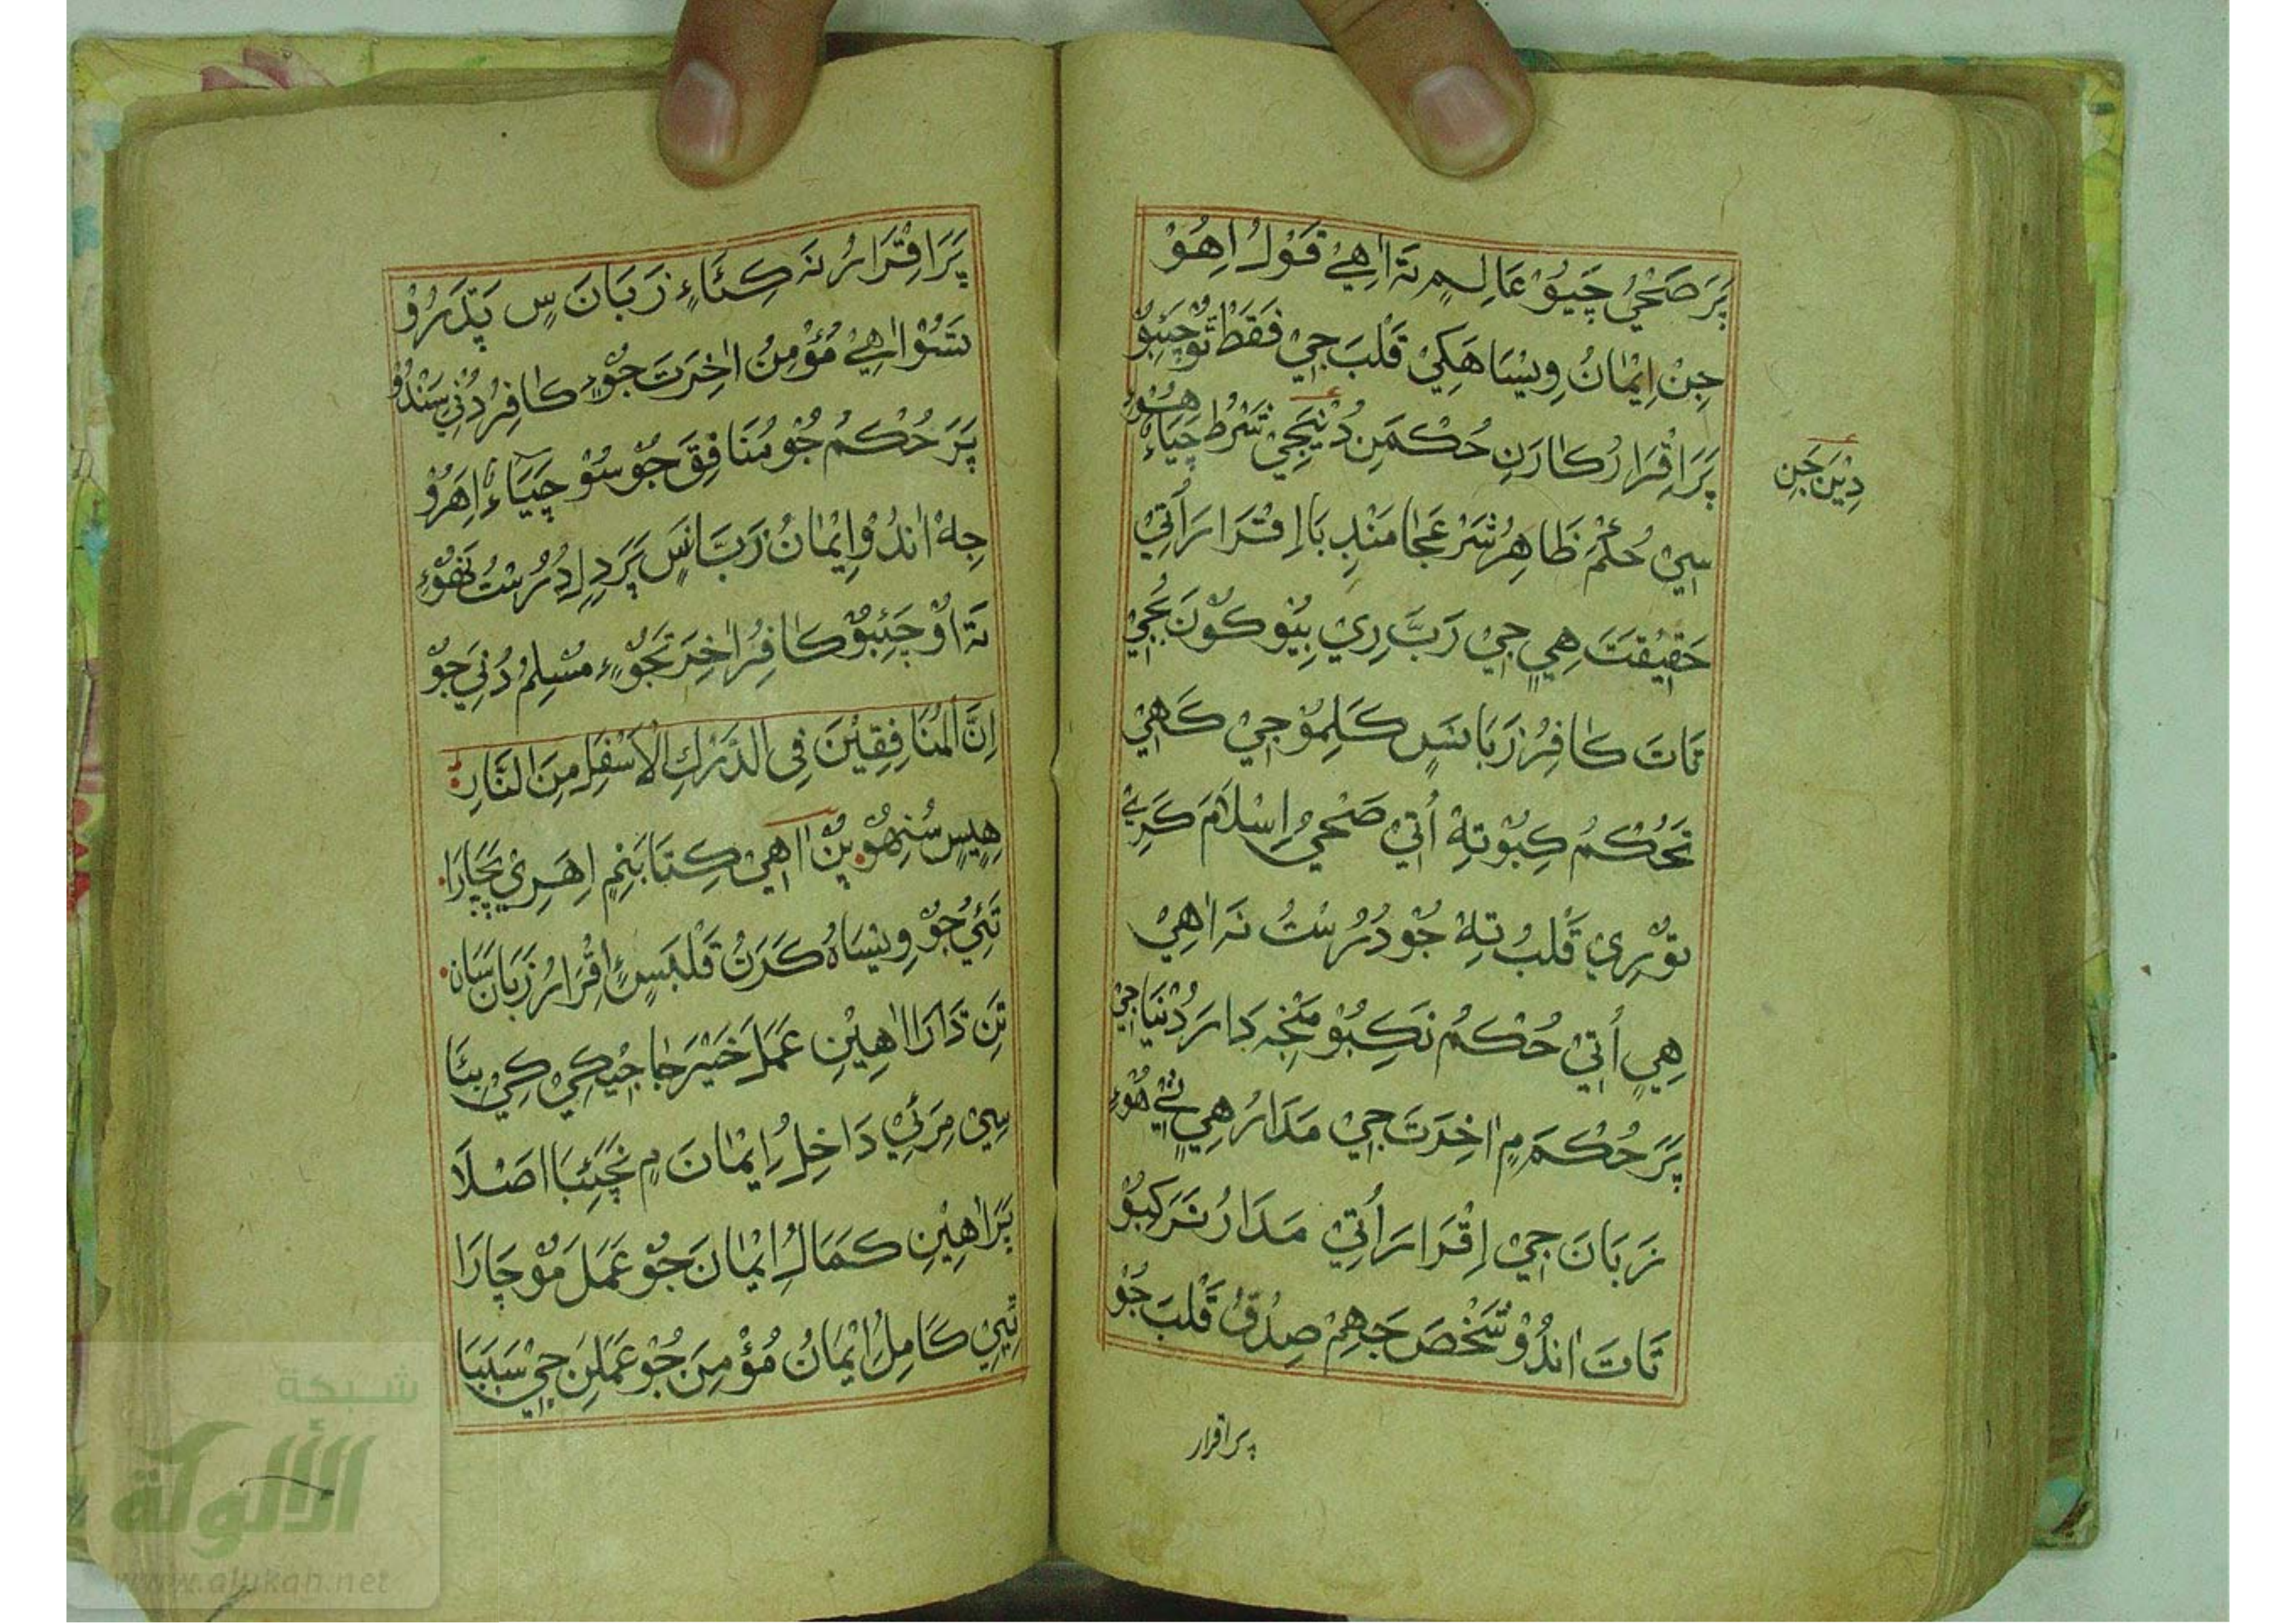 پَرَ صَحْيُ چَيُوْ عَالِمٍ تَہ اٰهِيْ قَوْلُ اِهُوْ
جِنْ اِيْمٰانُ وِيْسَاهَكِيْ قَلْبَ جِيْ فَقَطْ تُوْ چَئِبُوْ
پَرَ اِقْرَارُ كٰارَڻِ حُكْمَنِ دُنْيَجِيْ شَرْطُ چَيَاءِ هُوْءِ
دِيْنَ جَنِ
سِيْ حُكْمَ ظَاهِرُ شَرْعَجٰا مَنْدِ بَا اِقْرَارَ اُتِيْ
حَقِيْقَتَ هِيٍ جِيْ رَبَّ رِيْ ٻِيُوْ كُوْنَ ٻُجِيْ
تَاتَ كٰافِرُ زَبَانَسٍ كَلِمُوْ جِيْ كَهِيْ
تَحُكْمُ كِبُوْ تِهْ اُتِيْ صَحْيُ اِسْلَامَ كَرِيْ
تُوْرِيْ قَلْبُ تِهْ جُوْ دُرُسْتُ نَہ اٰهِيْ
هِيٍ اُتِيْ حُكْمُ نَكِبُوْ مَنْجِہ دَارَ دُنْيَا جِيْ
پَرَ حُكْمَ مٍ اٰخِرَتَ جِيْ مَدَارُ هِيٍ ئِيْ هُوْءِ
زَبَانَ جِيْ اِقْرَارَ اُتِيْ مَدَارُ نَہ رَكِبُوْ
تَاتَ اٰنڌُوْ شَخْصَ جَهِمْ صِدْقُ قَلْبَ جُوْ
پر اقرار
پَرَ اِقْرَارُ نَہ كِئَاءِ زَبَانَ سٍ پَڌَرُوْ
تَسُوْ اٰهِيْ مُؤْمِنُ اٰخِرَتَ جُوْءِ كٰافِرُ دُنْيَ سَنْدُوْ
پَرَ حُكْمُ جُوْ مُنَافِقَ جُوْ سُوْ چَيَاءُ اِهَرُوْ
جِهْ اٰنڌُوْ اِيْمٰانُ زَبَانَسٍ پَرَ دِلِ دُرُسْتُ نَهُوْءِ
تَہ اُوْ چَئِبُوْ كٰافِرُ اٰخِرَتَجُوْءِ مُسْلِمُ دُنْيَ جُوْ
اِنَّ الْمُنَافِقِيْنَ فِى الدَّرْكِ الْاَسْفَلِ مِنَ النَّارِ
هِيٍسٍ سُنِهُوْ پُنْ اٰهِيْ كِتَابَنِمٍ اِهَرِيْ پَچَارَا
تَئِيْ جُوْ وِيْسَاهُ كَرَنُ قَلْبَسٍ ءِ اِقْرَارُ زَبَانَ سَانِ
تَنِ دَارَا اٰهِيْنِ عَمَلَ خَيْرَ جٰا جِيْكِيْ كِيْ ٻِئَا
سِيْ مِرَئِيْ دَاخِلُ اِيْمٰانَ مٍ نَچَئِبَا اَصْلَا
پَرَ اٰهِيْنِ كَمَالُ اِيْمٰانَ جُوْ عَمَلَ مُوْچَارَا
تَّيِيْ كَامِلُ اِيْمَانُ مُؤْمِنَ جُوْ عَمَلَنِ جِيْ سَبَبَا
شبكة
الألوكة
www.alukah.net